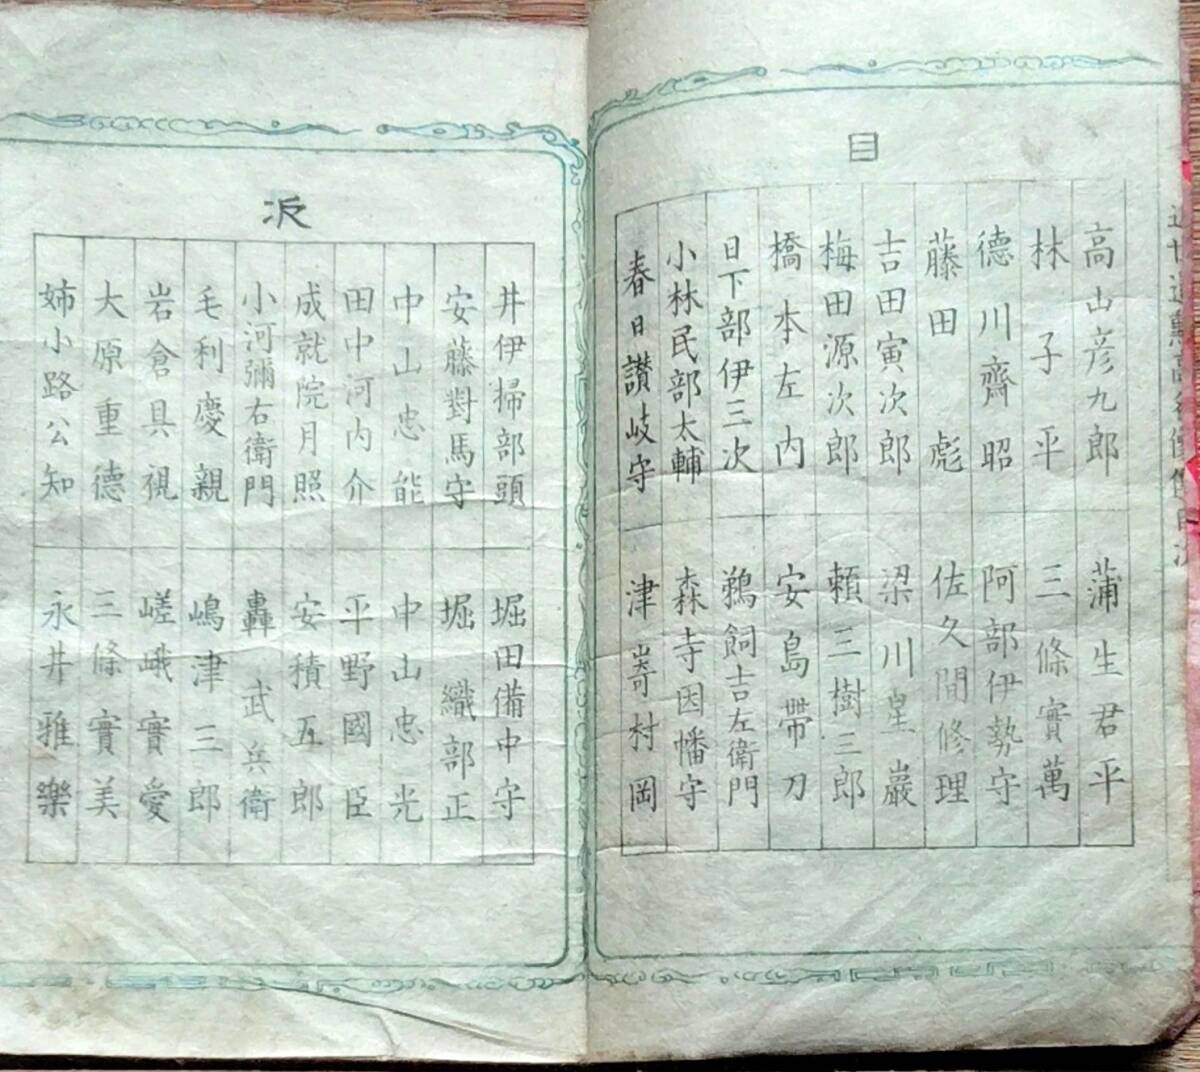 目
高山彦九郎
林子平
德川齊昭
藤田彪
吉田寅次郎
梅田源次郎
橋本左内
日下部伊三次
小林民部太輔
春日讃岐守
蒲生君平
三條實萬
阿部伊勢守
佐久間修理
梁川星巖
賴三樹三郎
安島帶刀
鵜飼吉左衛門
森寺因幡守
津嵜村岡
次
井伊掃部頭
安藤對馬守
中山忠能
田中河内介
成就院月照
小河彌右衛門
毛利慶親
岩倉具視
大原重德
姉小路公知
堀田備中守
堀織部正
中山忠光
平野國臣
安積五郎
轟武兵衛
嶋津三郎
嵯峨實愛
三條實美
永井雅樂